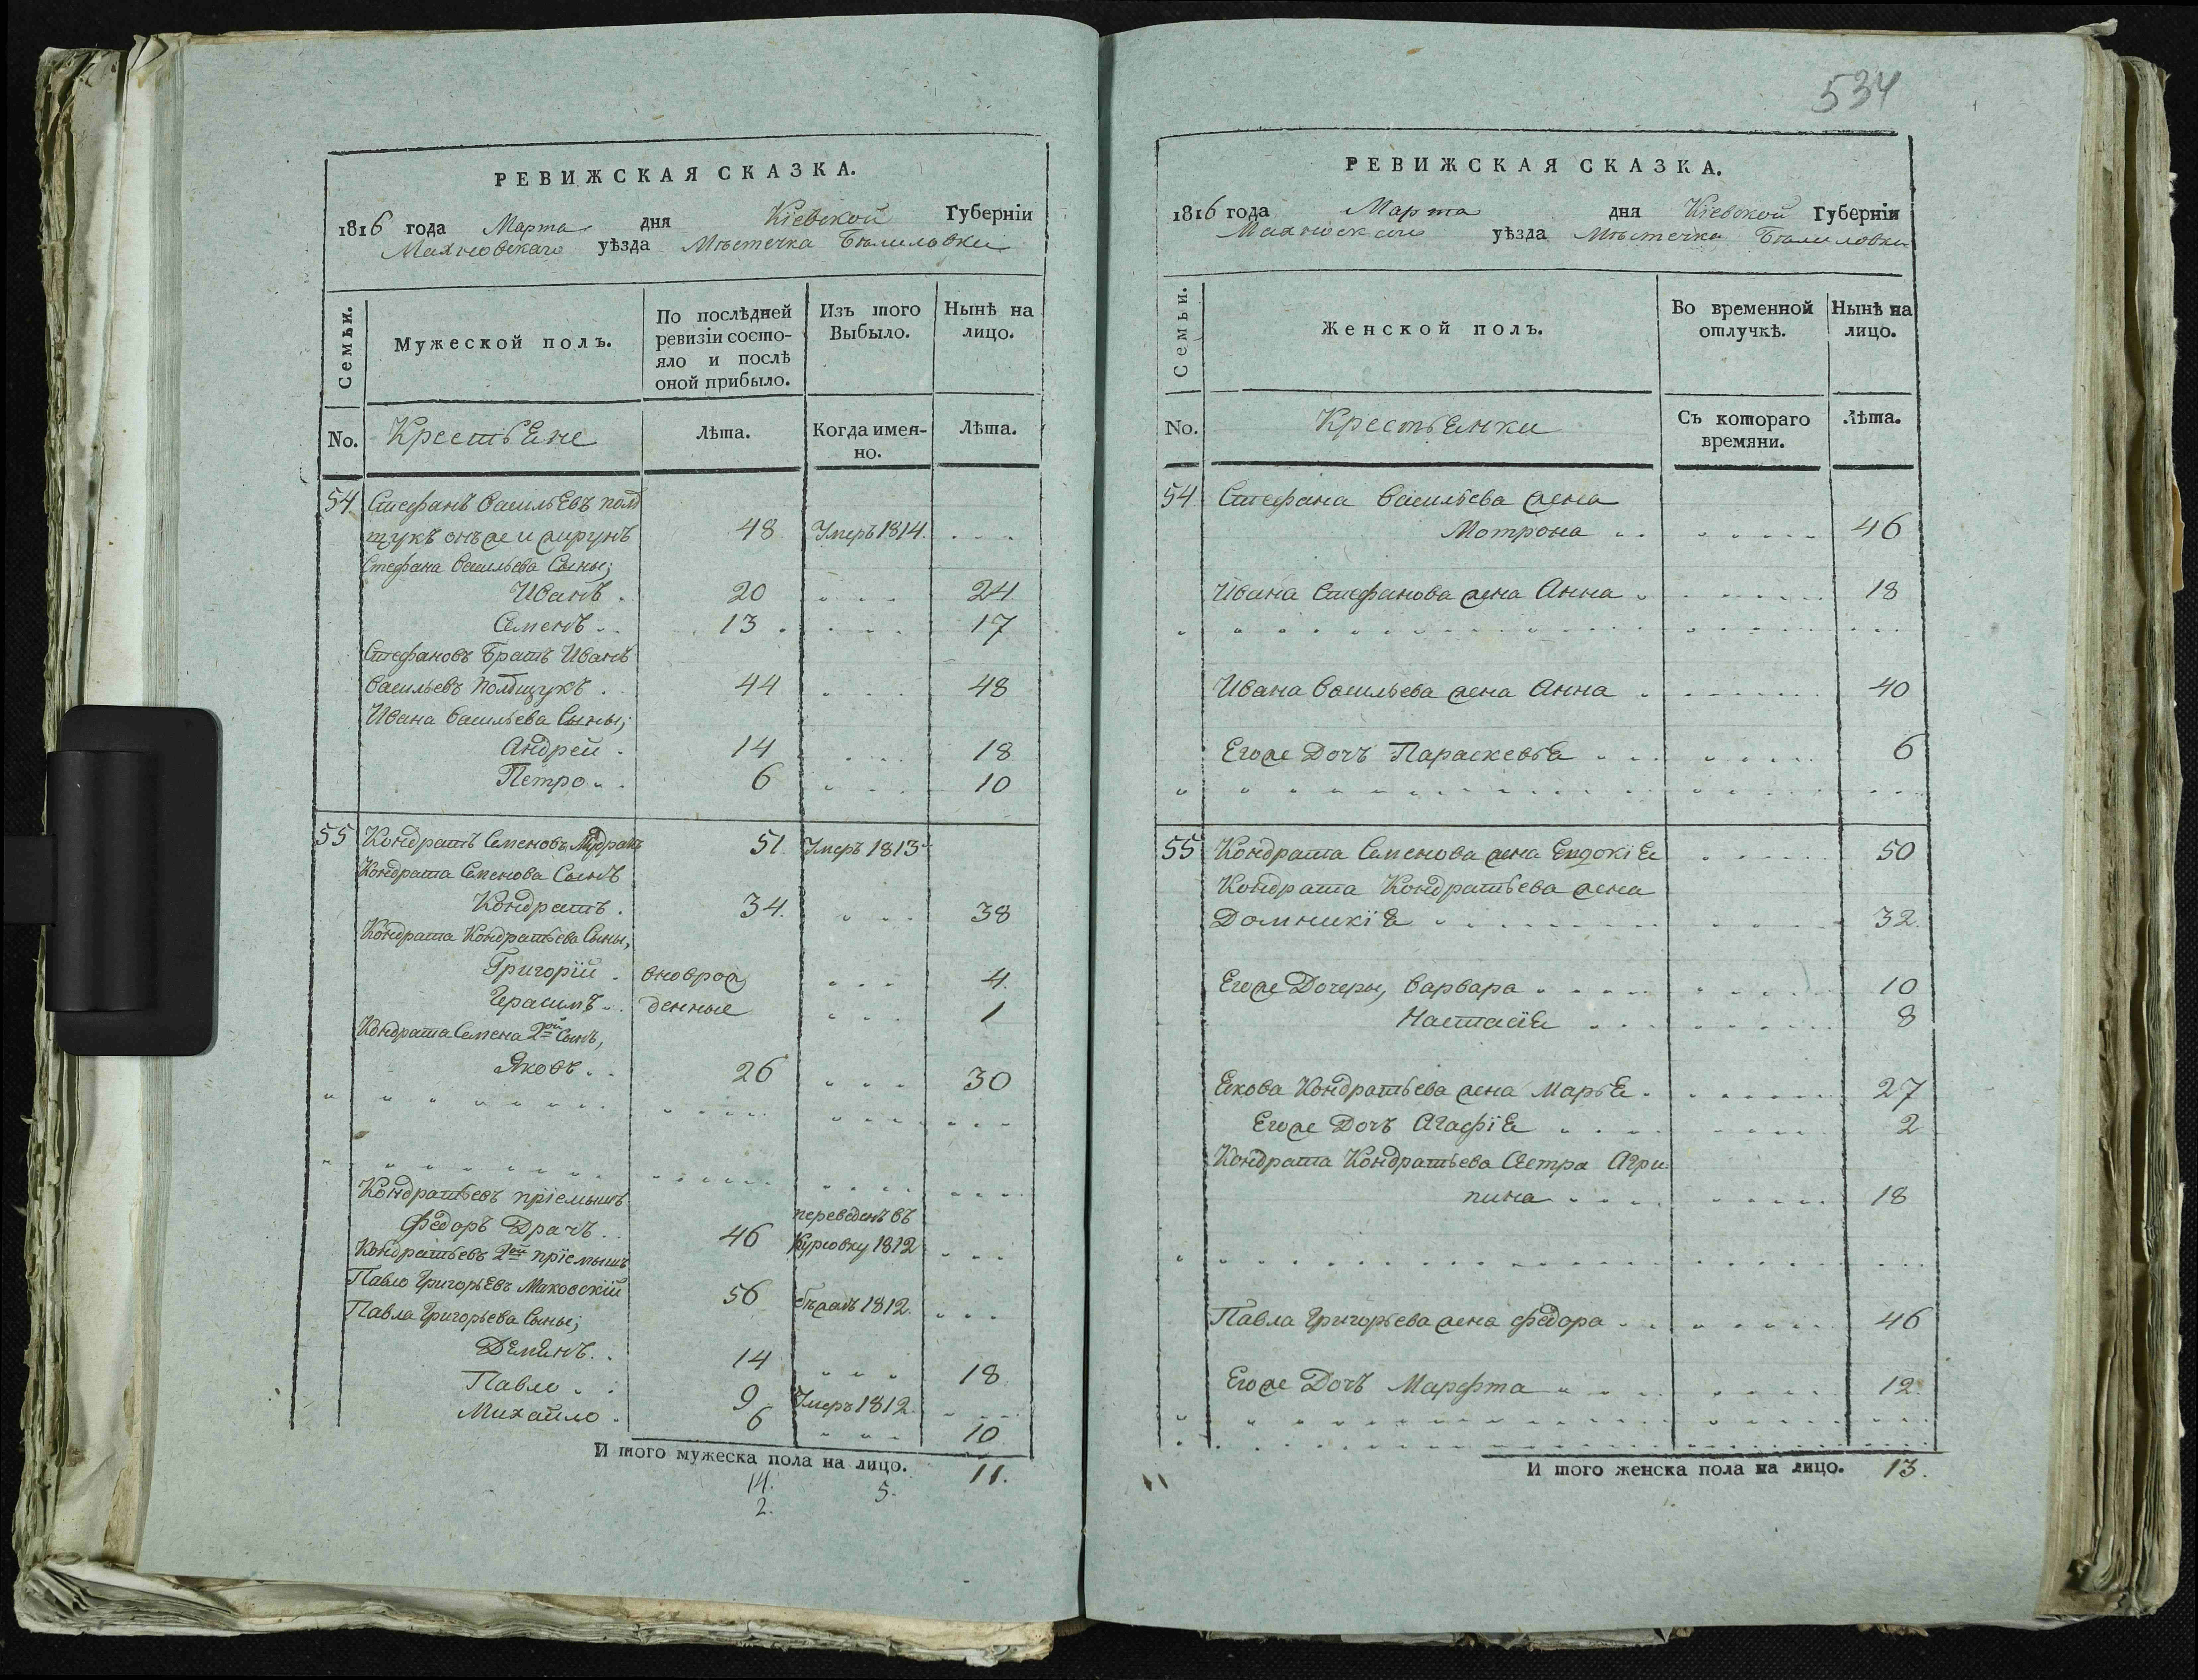 РЕВИЖСКАЯ СКАЗКА.
1816 года Марта дня Кіевской Губерніи
Махновскаго уѣзда Мѣстечка Бѣлиловки
Семьи.
Мужеской полъ.
По послѣдней ревизіи состо-
яло и послѣ
оной прибыло.
Изъ того
Выбыло.
Нынѣ на
лицо.
No.
Крестьяне
Лѣта.
Когда имен-
но.
Лѣта.
54 Стефанъ Васильевъ Полѣ
щукъ онъ же и 48 Умеръ 1814.
Стефана Васильева Сыны;
Иванъ 20 24
Семенъ 13 17
Стефановъ Братъ Иванъ
Васильевъ Полѣщукъ 44 48
Ивана Васильева Сыны;
Андрей 14 18
Петро 6 10
55 Кондратъ Семеновъ 51 Умеръ 1813
Кондрата Семенова Сынъ
Кондратъ 34. 38
Кондрата Кондратьева Сыны,
Григорій вноврож 4.
Герасимъ денные 1
Кондрата Семена 2й Сынъ,
Яковъ 26 30
Кондратьевъ пріемышъ
Федоръ Драчъ 46 переведенъ въ
1812
Кондратьевъ 2ей пріемышъ
Павло Григорьевъ Маковскій 56 бѣжалъ 1812.
Павла Григорьева Сыны;
Демянъ 14 18
Павло 9 Умеръ 1812.
Михайло 6 10
И того мужеска пола на лицо. 11.
14. 5.
2.
534
РЕВИЖСКАЯ СКАЗКА.
1816 года Марта дня Кіевской Губерніи
Махновскаго уѣзда Мѣстечка Бѣлиловки
Семьи.
Женской полъ.
Во временной
отлучкѣ.
Нынѣ на
лицо.
No.
Крестьянки
Съ котораго
времяни.
Лѣта.
54 Стефана Васильева жена
Мотрона 46
Ивана Стефанова жена Анна 18
Ивана Васильева жена Анна 40
Егоже Дочъ Параскевья 6
55 Кондрата Семенова жена Евдокія 50
Кондрата Кондратьева жена
Домникія 32.
Егоже Дочеры, Варвара 10
Настасія 8
Якова Кондратьева жена Марья 27
Егоже Дочъ Агафія 2
Кондрата Кондратьева Сестра Агри
пина 18
Павла Григорьева жена Федора 46
Егоже Дочъ Марфта 12.
И того женска пола на лицо. 13.